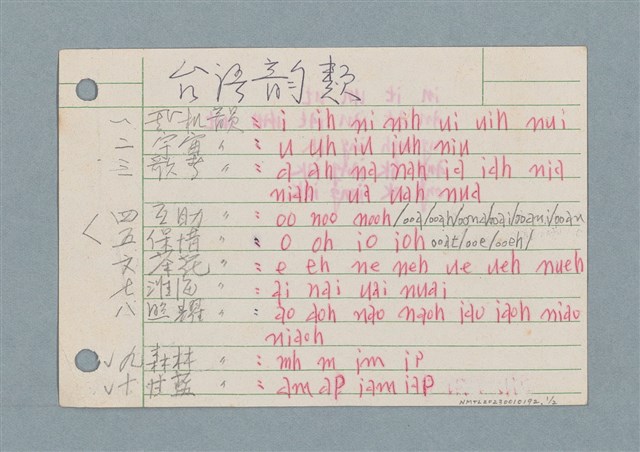 台語韵類
一 韻 〃 : i ih ni nih ui uih nui
二 宇宙 〃 : u uh iu iuh niu
三 歌 〃 : a ah na nah ia iah nia
niah ua uah nua
四 互助 〃 : oo noo nooh/ooa/ooah/oona/ooai/
五 保惜 〃 : o oh io ioh ooat/ooe/ooeh/
六 茶花 〃 : e eh ne neh ue ueh nueh
七 淮海 〃 : ai nai uai nuai
八 照耀 〃 : ao aoh nao naoh iao iaoh niao
niaoh
九 森林 〃 : mh m im ip
十 甘藍 〃 : am ap iam iap
NMTL20230010192, 1/2